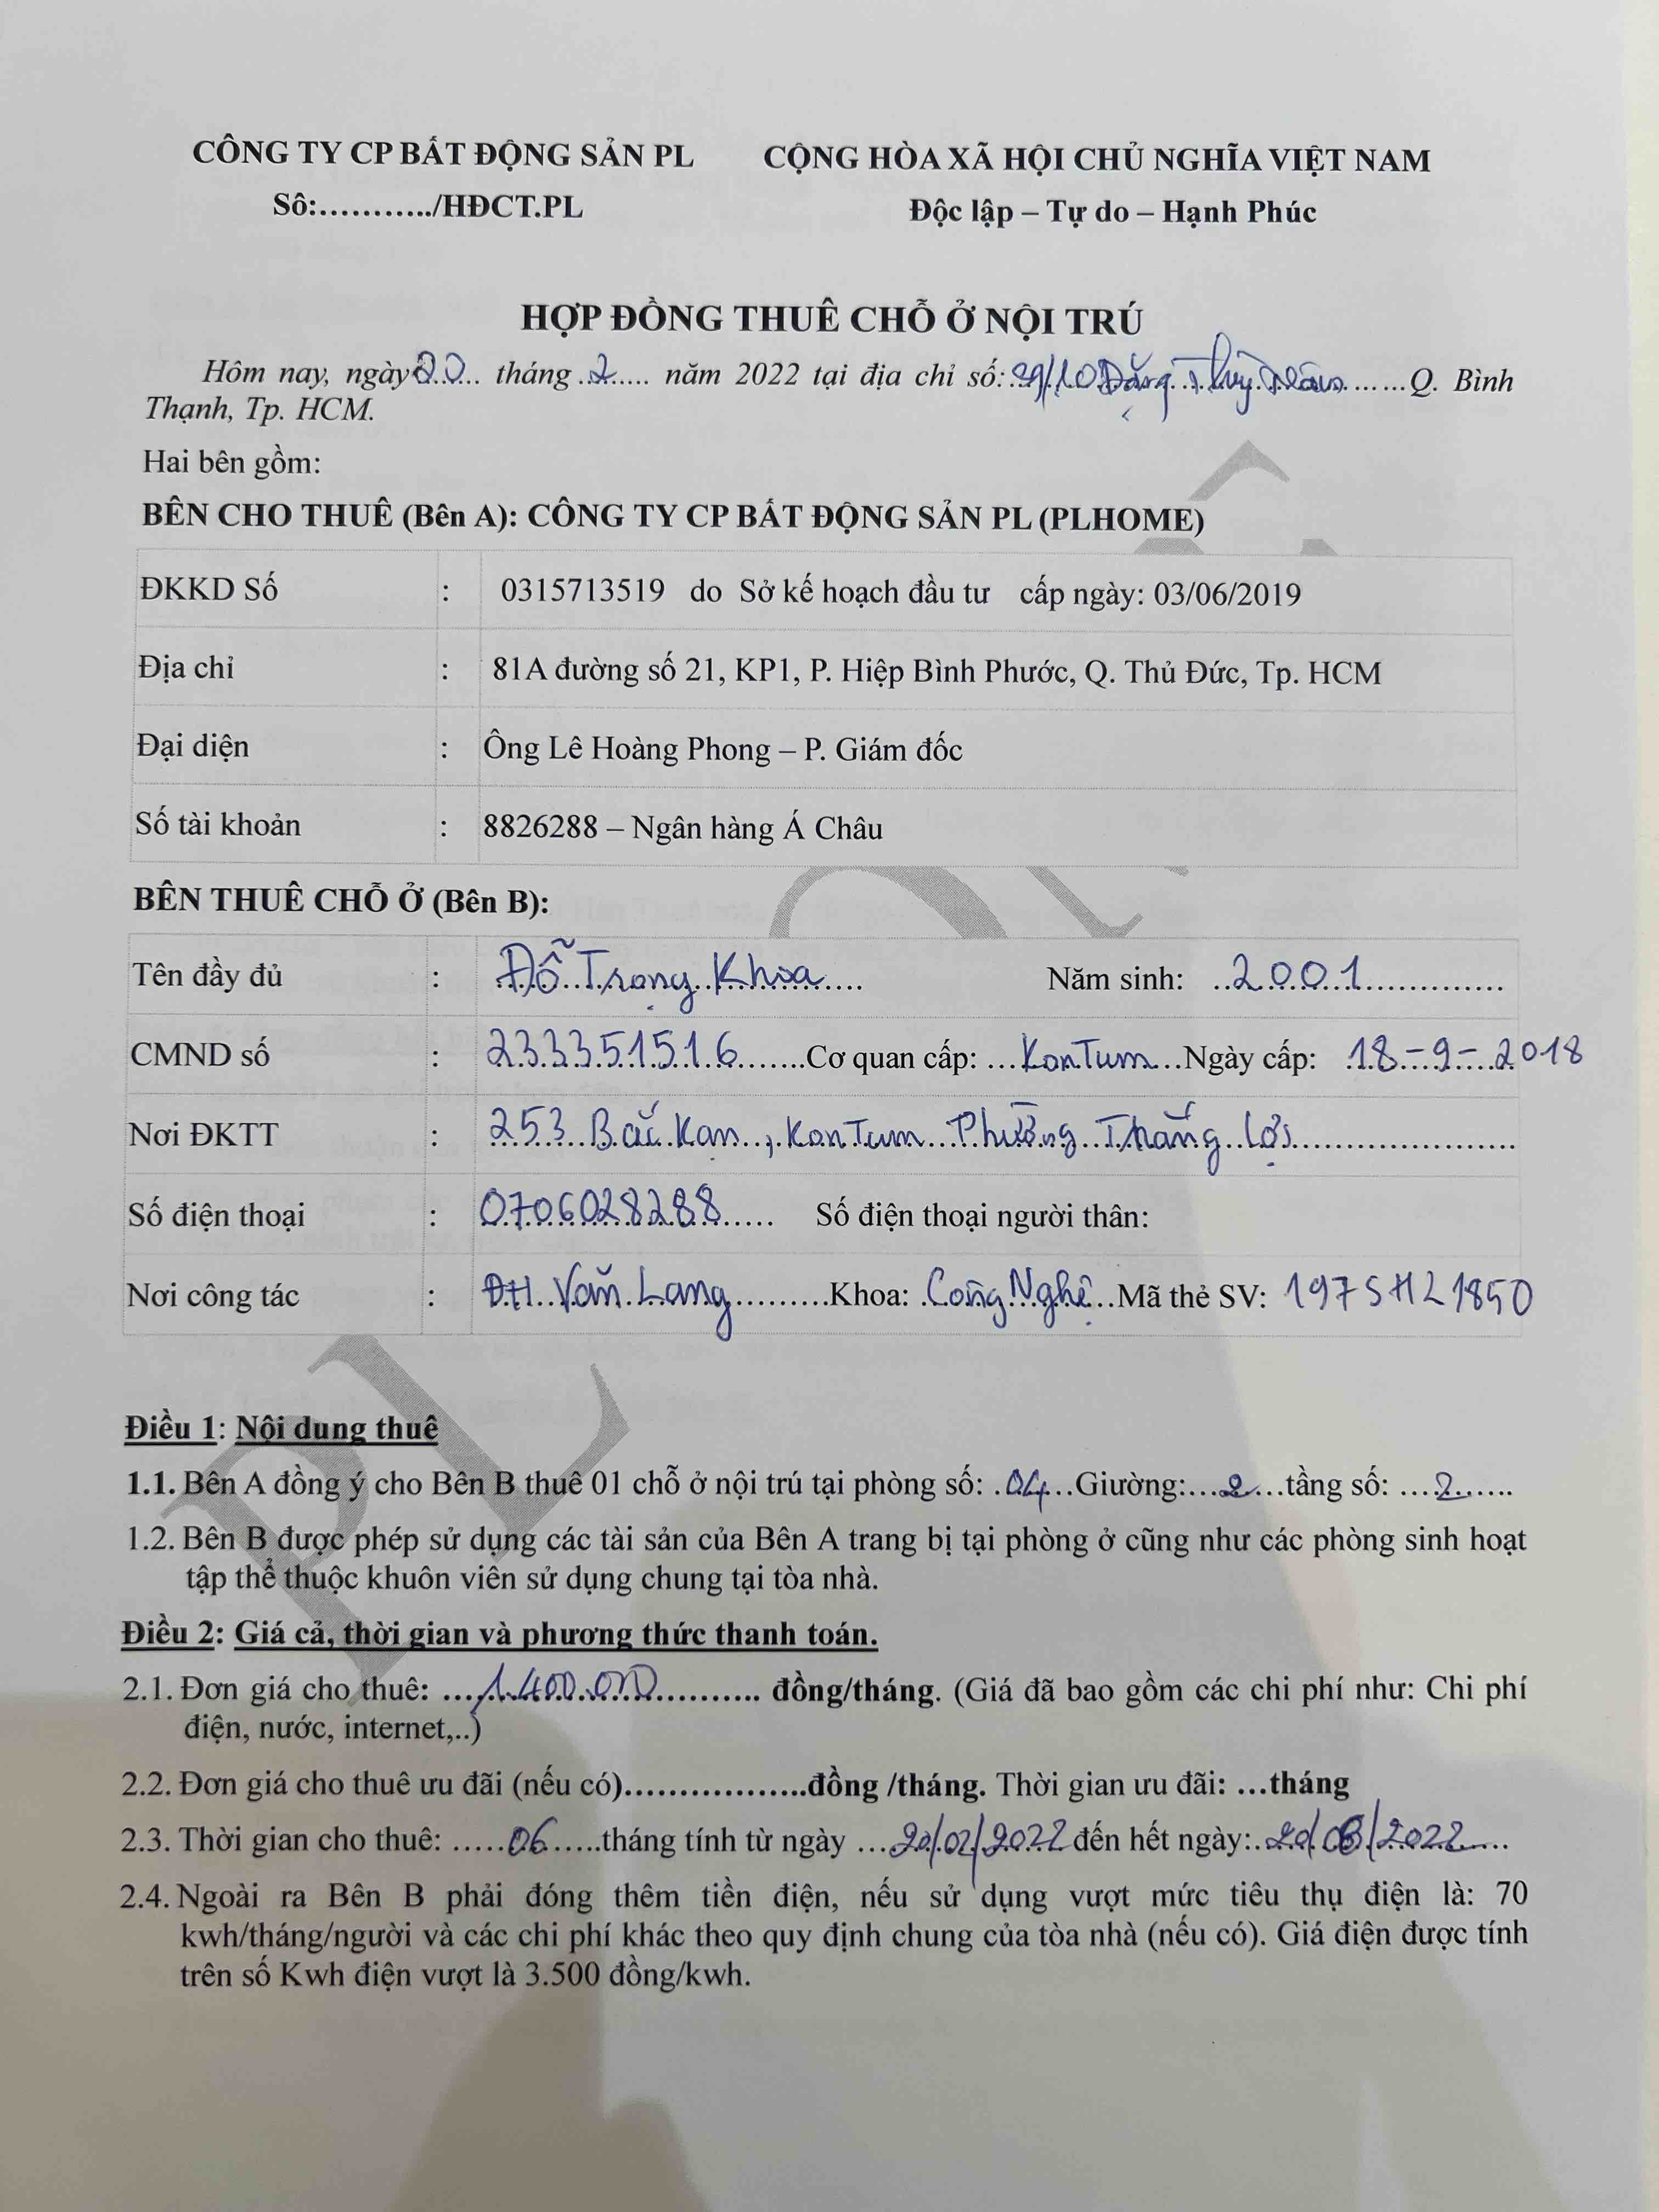 CÔNG TY CP BẤT ĐỘNG SẢN PL CỘNG HÒA XÃ HỘI CHỦ NGHĨA VIỆT NAM
Số:.........../HĐCT.PL Độc lập – Tự do – Hạnh Phúc
HỢP ĐỒNG THUÊ CHỖ Ở NỘI TRÚ
Hôm nay, ngày 20 tháng 2 năm 2022 tại địa chỉ số: 29/10 Đặng Thùy Trâm Q. Bình
Thạnh, Tp. HCM.
Hai bên gồm:
BÊN CHO THUÊ (Bên A): CÔNG TY CP BẤT ĐỘNG SẢN PL (PLHOME)
ĐKKD Số : 0315713519 do Sở kế hoạch đầu tư cấp ngày: 03/06/2019
Địa chỉ : 81A đường số 21, KP1, P. Hiệp Bình Phước, Q. Thủ Đức, Tp. HCM
Đại diện : Ông Lê Hoàng Phong – P. Giám đốc
Số tài khoản : 8826288 – Ngân hàng Á Châu
BÊN THUÊ CHỖ Ở (Bên B):
Tên đầy đủ : Đỗ Trọng Khoa Năm sinh: 2001
CMND số : 233351516 Cơ quan cấp: KonTum Ngày cấp: 18-9-2018
Nơi ĐKTT : 253 Bắc Kạn, KonTum Phường Thắng Lợi
Số điện thoại : 0706028288 Số điện thoại người thân:
Nơi công tác : ĐH Văn Lang Khoa: Công Nghệ Mã thẻ SV: 197SH21850
Điều 1: Nội dung thuê
1.1. Bên A đồng ý cho Bên B thuê 01 chỗ ở nội trú tại phòng số: 04 Giường: 2 tầng số: 2
1.2. Bên B được phép sử dụng các tài sản của Bên A trang bị tại phòng ở cũng như các phòng sinh hoạt
tập thể thuộc khuôn viên sử dụng chung tại tòa nhà.
Điều 2: Giá cả, thời gian và phương thức thanh toán.
2.1. Đơn giá cho thuê: 1.400.000 đồng/tháng. (Giá đã bao gồm các chi phí như: Chi phí
điện, nước, internet,..)
2.2. Đơn giá cho thuê ưu đãi (nếu có)..................đồng /tháng. Thời gian ưu đãi: ...tháng
2.3. Thời gian cho thuê: 06 tháng tính từ ngày 20/02/2022 đến hết ngày: 20/08/2022
2.4. Ngoài ra Bên B phải đóng thêm tiền điện, nếu sử dụng vượt mức tiêu thụ điện là: 70
kwh/tháng/người và các chi phí khác theo quy định chung của tòa nhà (nếu có). Giá điện được tính
trên số Kwh điện vượt là 3.500 đồng/kwh.